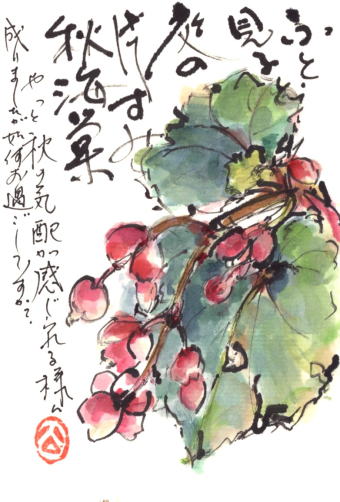 ふと
見る
庭の
片すみ
秋海棠
やっと秋の気配が感じれる様に
成りましたが如何お過ごしですか?